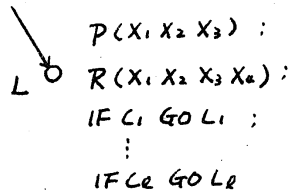 P(X₁ X₂ X₃) ;
L R(X₁ X₂ X₃ X₄) ;
IF C₁ GO L₁ ;
⋮
IF Cℓ GO Lℓ